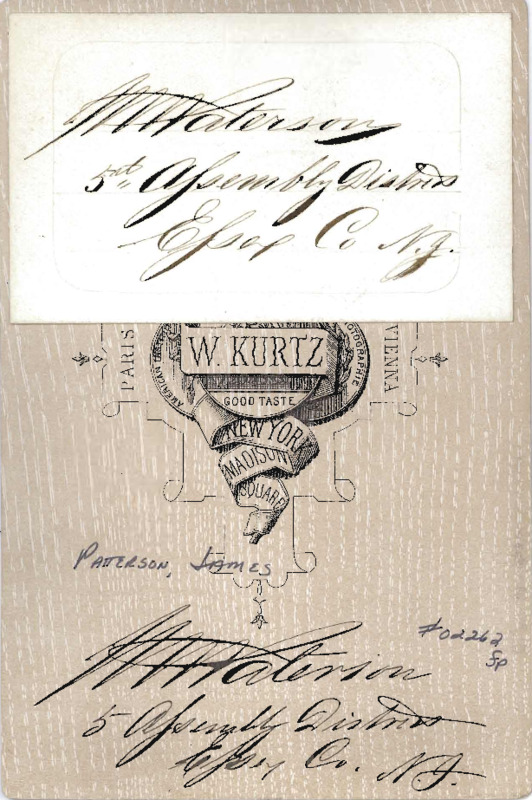 Wm H Paterson
5th Assembly District
Essex Co N.J.
PARIS
VIENNA
W. KURTZ
PHOTOGRAPHIE
GOOD TASTE
NEW YORK
MADISON
SQUARE
PATERSON, JAMES
#02262
Paterson
5 Assembly District
Essex Co. N.J.